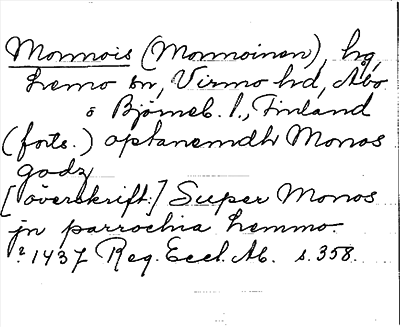 Monnois (Monnoinen), hg,
Lemo sn, Virmo hd, Åbo
o Björneb. l., Finland
(forts.) optanemdh Monos
godz
[överskrift:] Super Monos
jn parrochia Lemmo.
? 1437 Reg. Eccl. Ab. s. 358.